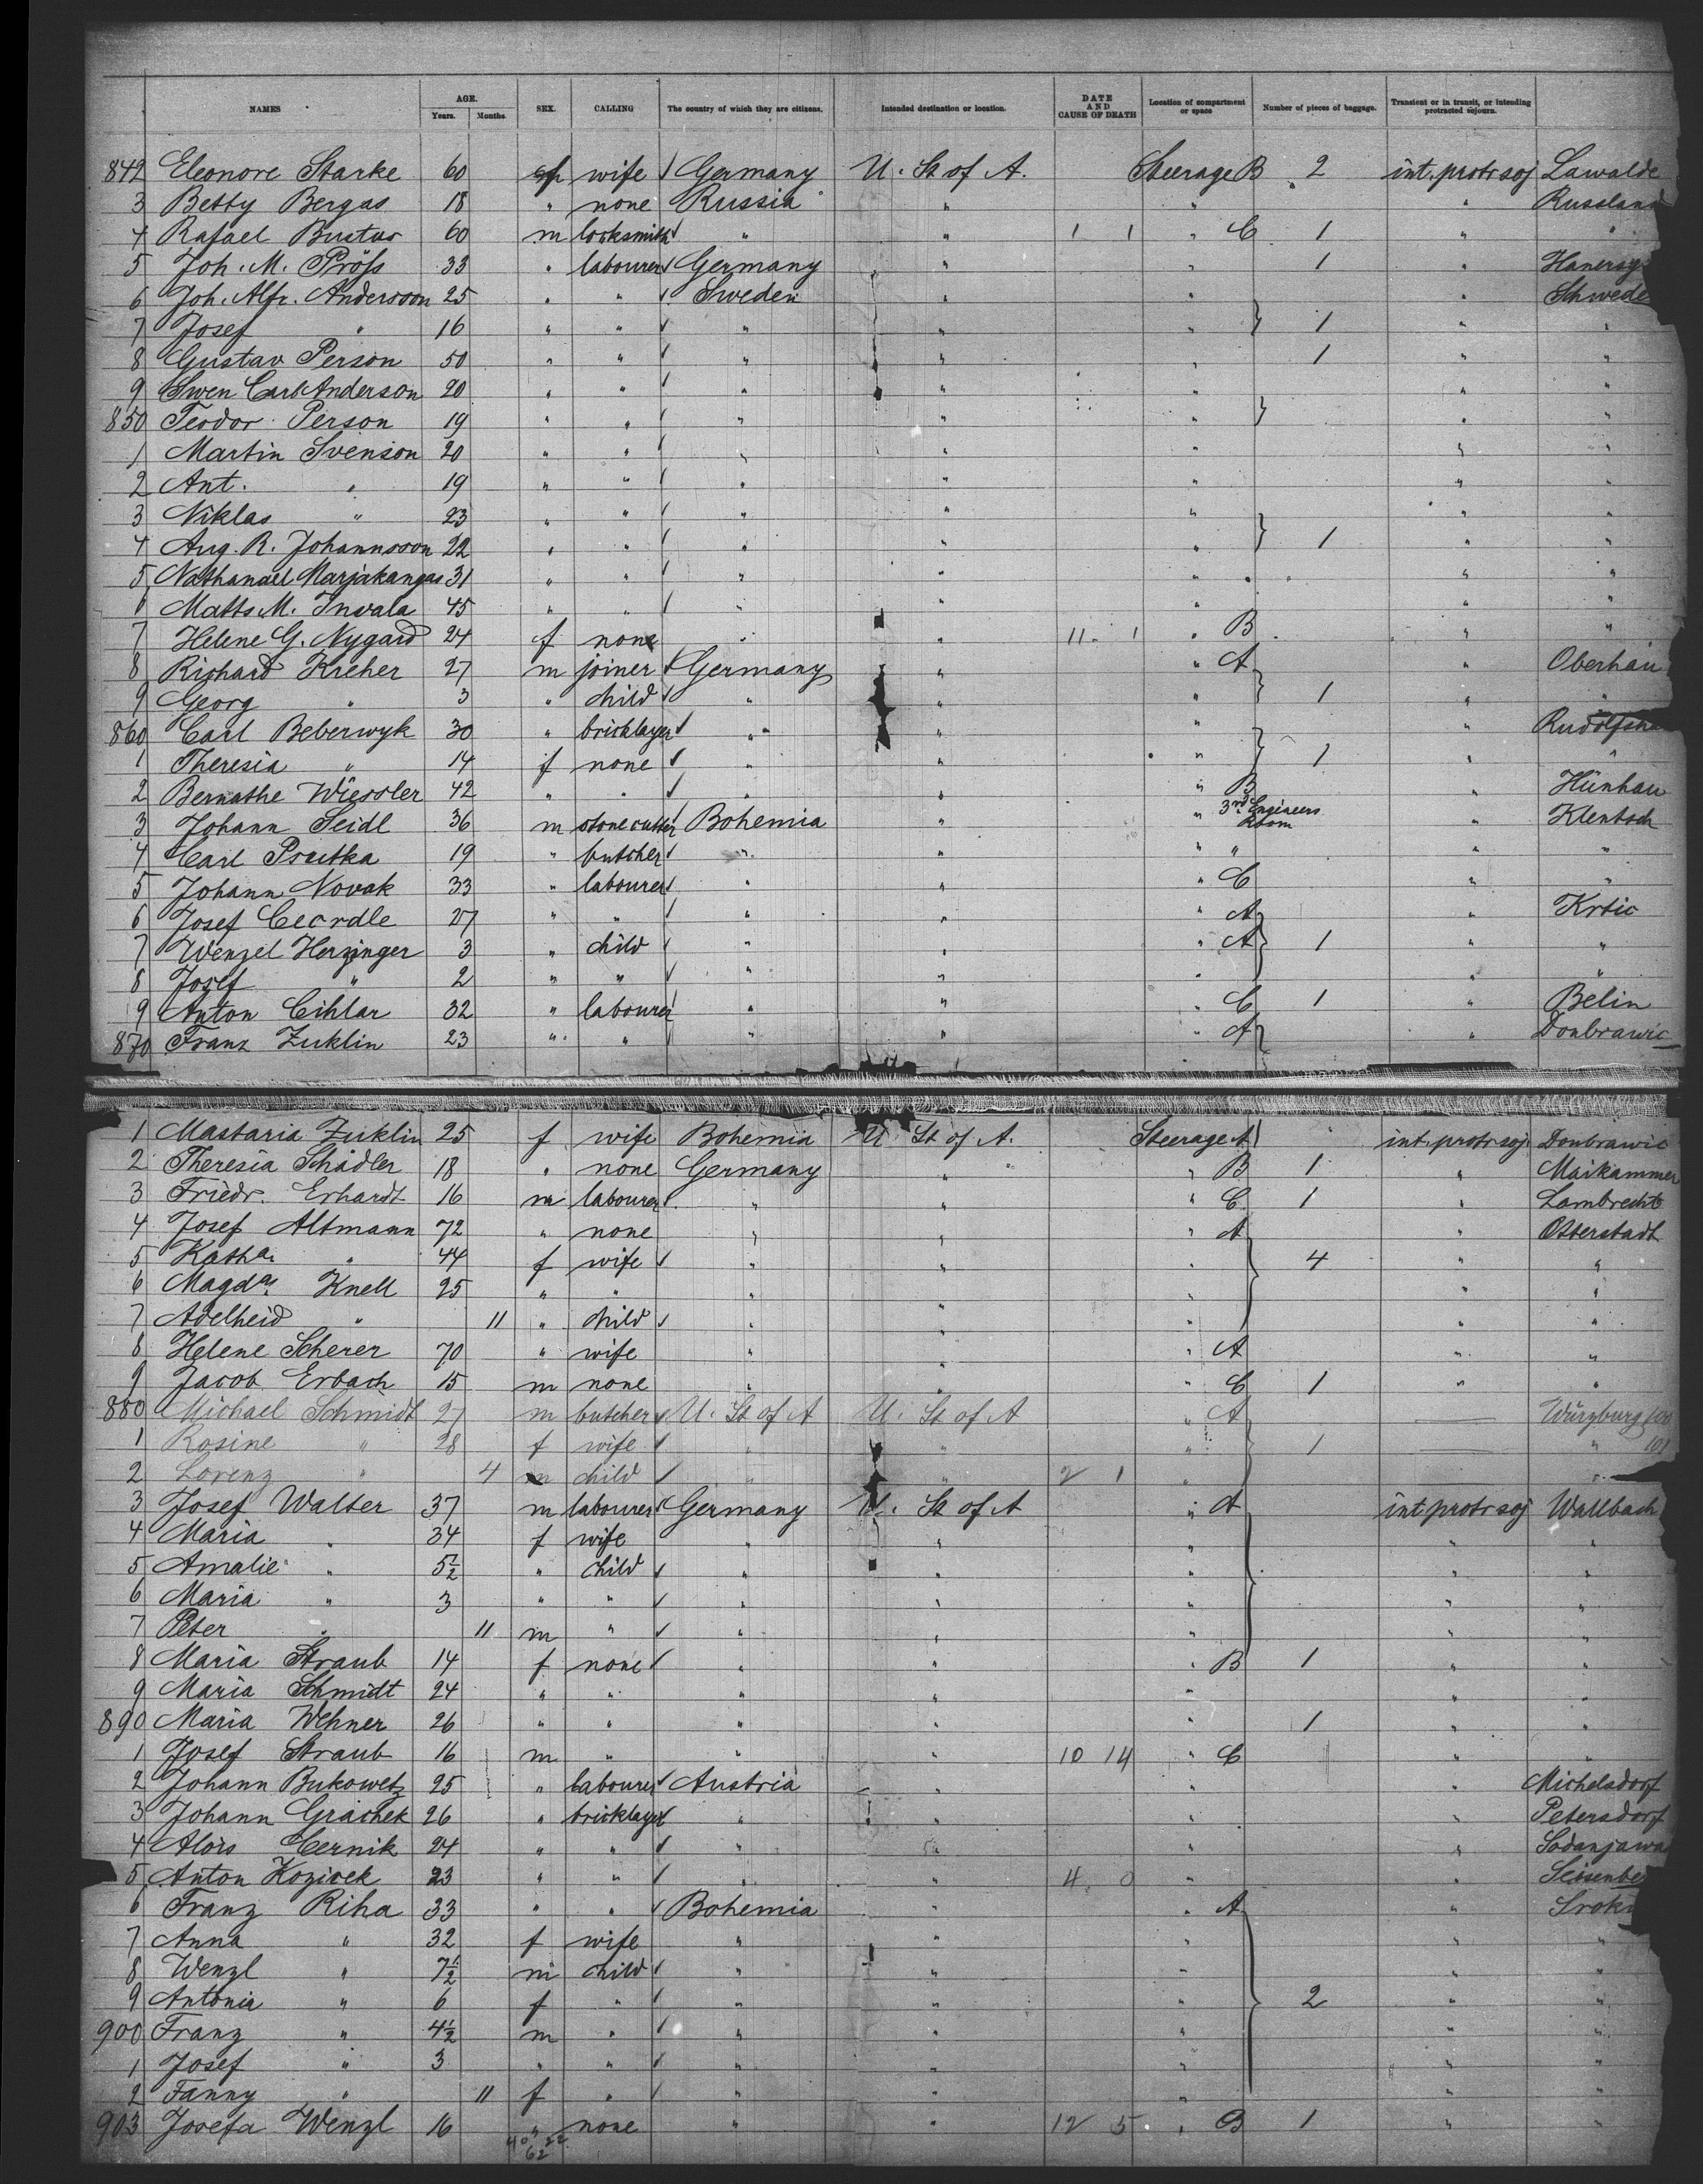 NAMES AGE. Years. Months. SEX. CALLING The country of which they are citizens. Intended destination or location. DATE AND CAUSE OF DEATH Location of compartment or space Number of pieces of baggage. Transient or in transit, or intending protracted sojourn.
842 Eleonore Starke 60 f wife Germany U. St of A. Steerage B 2 int. protr soj Lawalde
3 Betty Bergas 18 " none Russia " " " Russland
4 Rafael Bustus 60 m locksmith " " 1 1 " C 1 " "
5 Joh. M. Pröss 33 " labourer Germany " " 1 "
6 Joh. Alfr. Andersson 25 " " Sweden " " " Schwede
7 Josef " 16 " " " " " 1 " "
8 Gustav Person 50 " " " " " 1 " "
9 Swen Carl Anderson 20 " " " " " " "
850 Teodor Person 19 " " " " " " "
1 Martin Svenson 20 " " " " " " "
2 Ant. " 19 " " " " " " "
3 Niklas " 23 " " " " " " "
4 Aug. R. Johannsson 22 " " " " " 1 " "
5 Nathanael Marjakangas 31 " " " " " " "
6 Matts M. Invala 45 " " " " " " "
7 Helene G. Nygard 24 f none " " 11 1 " B " "
8 Richard Kreher 27 m joiner Germany " " A " Oberhau
9 Georg " 3 " child " " " 1 " "
860 Carl Beberwyk 30 " bricklayer " " " " Rudolfsha
1 Theresia " 14 f none " " " 1 " "
2 Bernathe Wiessler 42 " " " " " B " Hünhau
3 Johann Seidl 36 m stonecutter Bohemia " " 3rd Engineers Room " Klentsch
4 Carl Psutka 19 " butcher " " " " " "
5 Johann Novak 33 " labourer " " " C " "
6 Josef Cecrdle 27 " " " " " A " Krtic
7 Wenzel Herzinger 3 " child " " " A 1 " "
8 Josef " 2 " " " " " " "
9 Anton Cihlar 32 " labourer " " " C 1 " Belin
870 Franz Zuklin 23 " " " " " A " Doubrawic
1 Mastaria Zuklin 25 f wife Bohemia U St of A. Steerage A int. protr soj. Doubrawic
2 Theresia Schädler 18 " none Germany " " B 1 " Maikammer
3 Friedr. Erhardt 16 m labourer " " " C 1 " Lambrecht
4 Josef Altmann 72 " none " " " A " Otterstadt
5 Katha. " 44 f wife " " " 4 " "
6 Magda. Knell 25 " " " " " " "
7 Adelheid " 11 " child " " " " "
8 Helene Scherer 70 " wife " " " A " "
9 Jacob Erbach 15 m none " " " C 1 " "
880 Michael Schmidt 27 m butcher U. St of A U. St of A " A — Würzburg 100
1 Rosine " 28 f wife " " " 1 — " 101
2 Lorenz " 4 m child " " 2 1 " "
3 Josef Walter 37 m labourer Germany U. St of A " A int protr soj Wallbach
4 Maria " 34 f wife " " " " "
5 Amalie " 5½ " child " " " " "
6 Maria " 3 " " " " " " "
7 Peter " 11 m " " " " " "
8 Maria Straub 14 f none " " " B 1 " "
9 Maria Schmidt 24 " " " " " " "
890 Maria Wehner 26 " " " " " 1 " "
1 Josef Straub 16 m " " " 10 14 " C " "
2 Johann Bukowetz 25 " labourer Austria " " " Michelsdorf
3 Johann Grachek 26 " bricklayer " " " " Petersdorf
4 Alois Cernik 24 " " " " " " Sodanjawa
5 Anton Kozicek 23 " " " " 4 0 " "
6 Franz Riha 33 " " Bohemia " " A "
7 Anna " 32 f wife " " " " "
8 Wenzl " 7½ m child " " " " "
9 Antonia " 6 f " " " " 2 " "
900 Franz " 4½ m " " " " " "
1 Josef " 3 " " " " " " "
2 Fanny " 11 f " " " " " "
903 Josefa Wenzl 16 " none " " 12 5 " B 1 " "
40 22
62